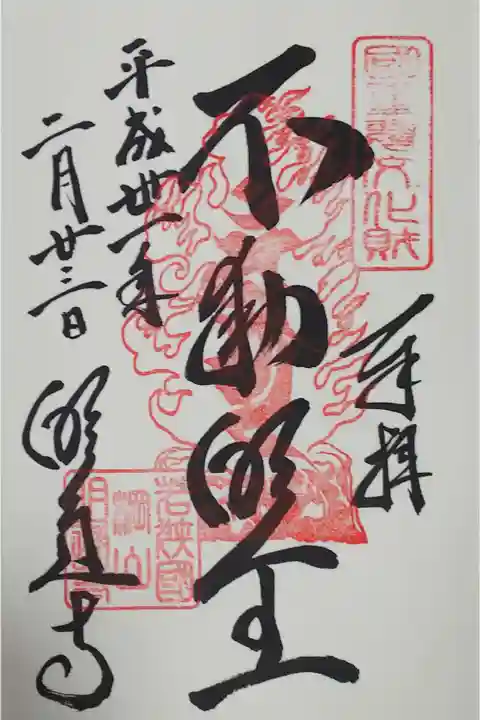 國重要文化財
奉拝
不動明王
平成卅一年
二月廿三日
明通寺
若狭國
棡山
明通寺